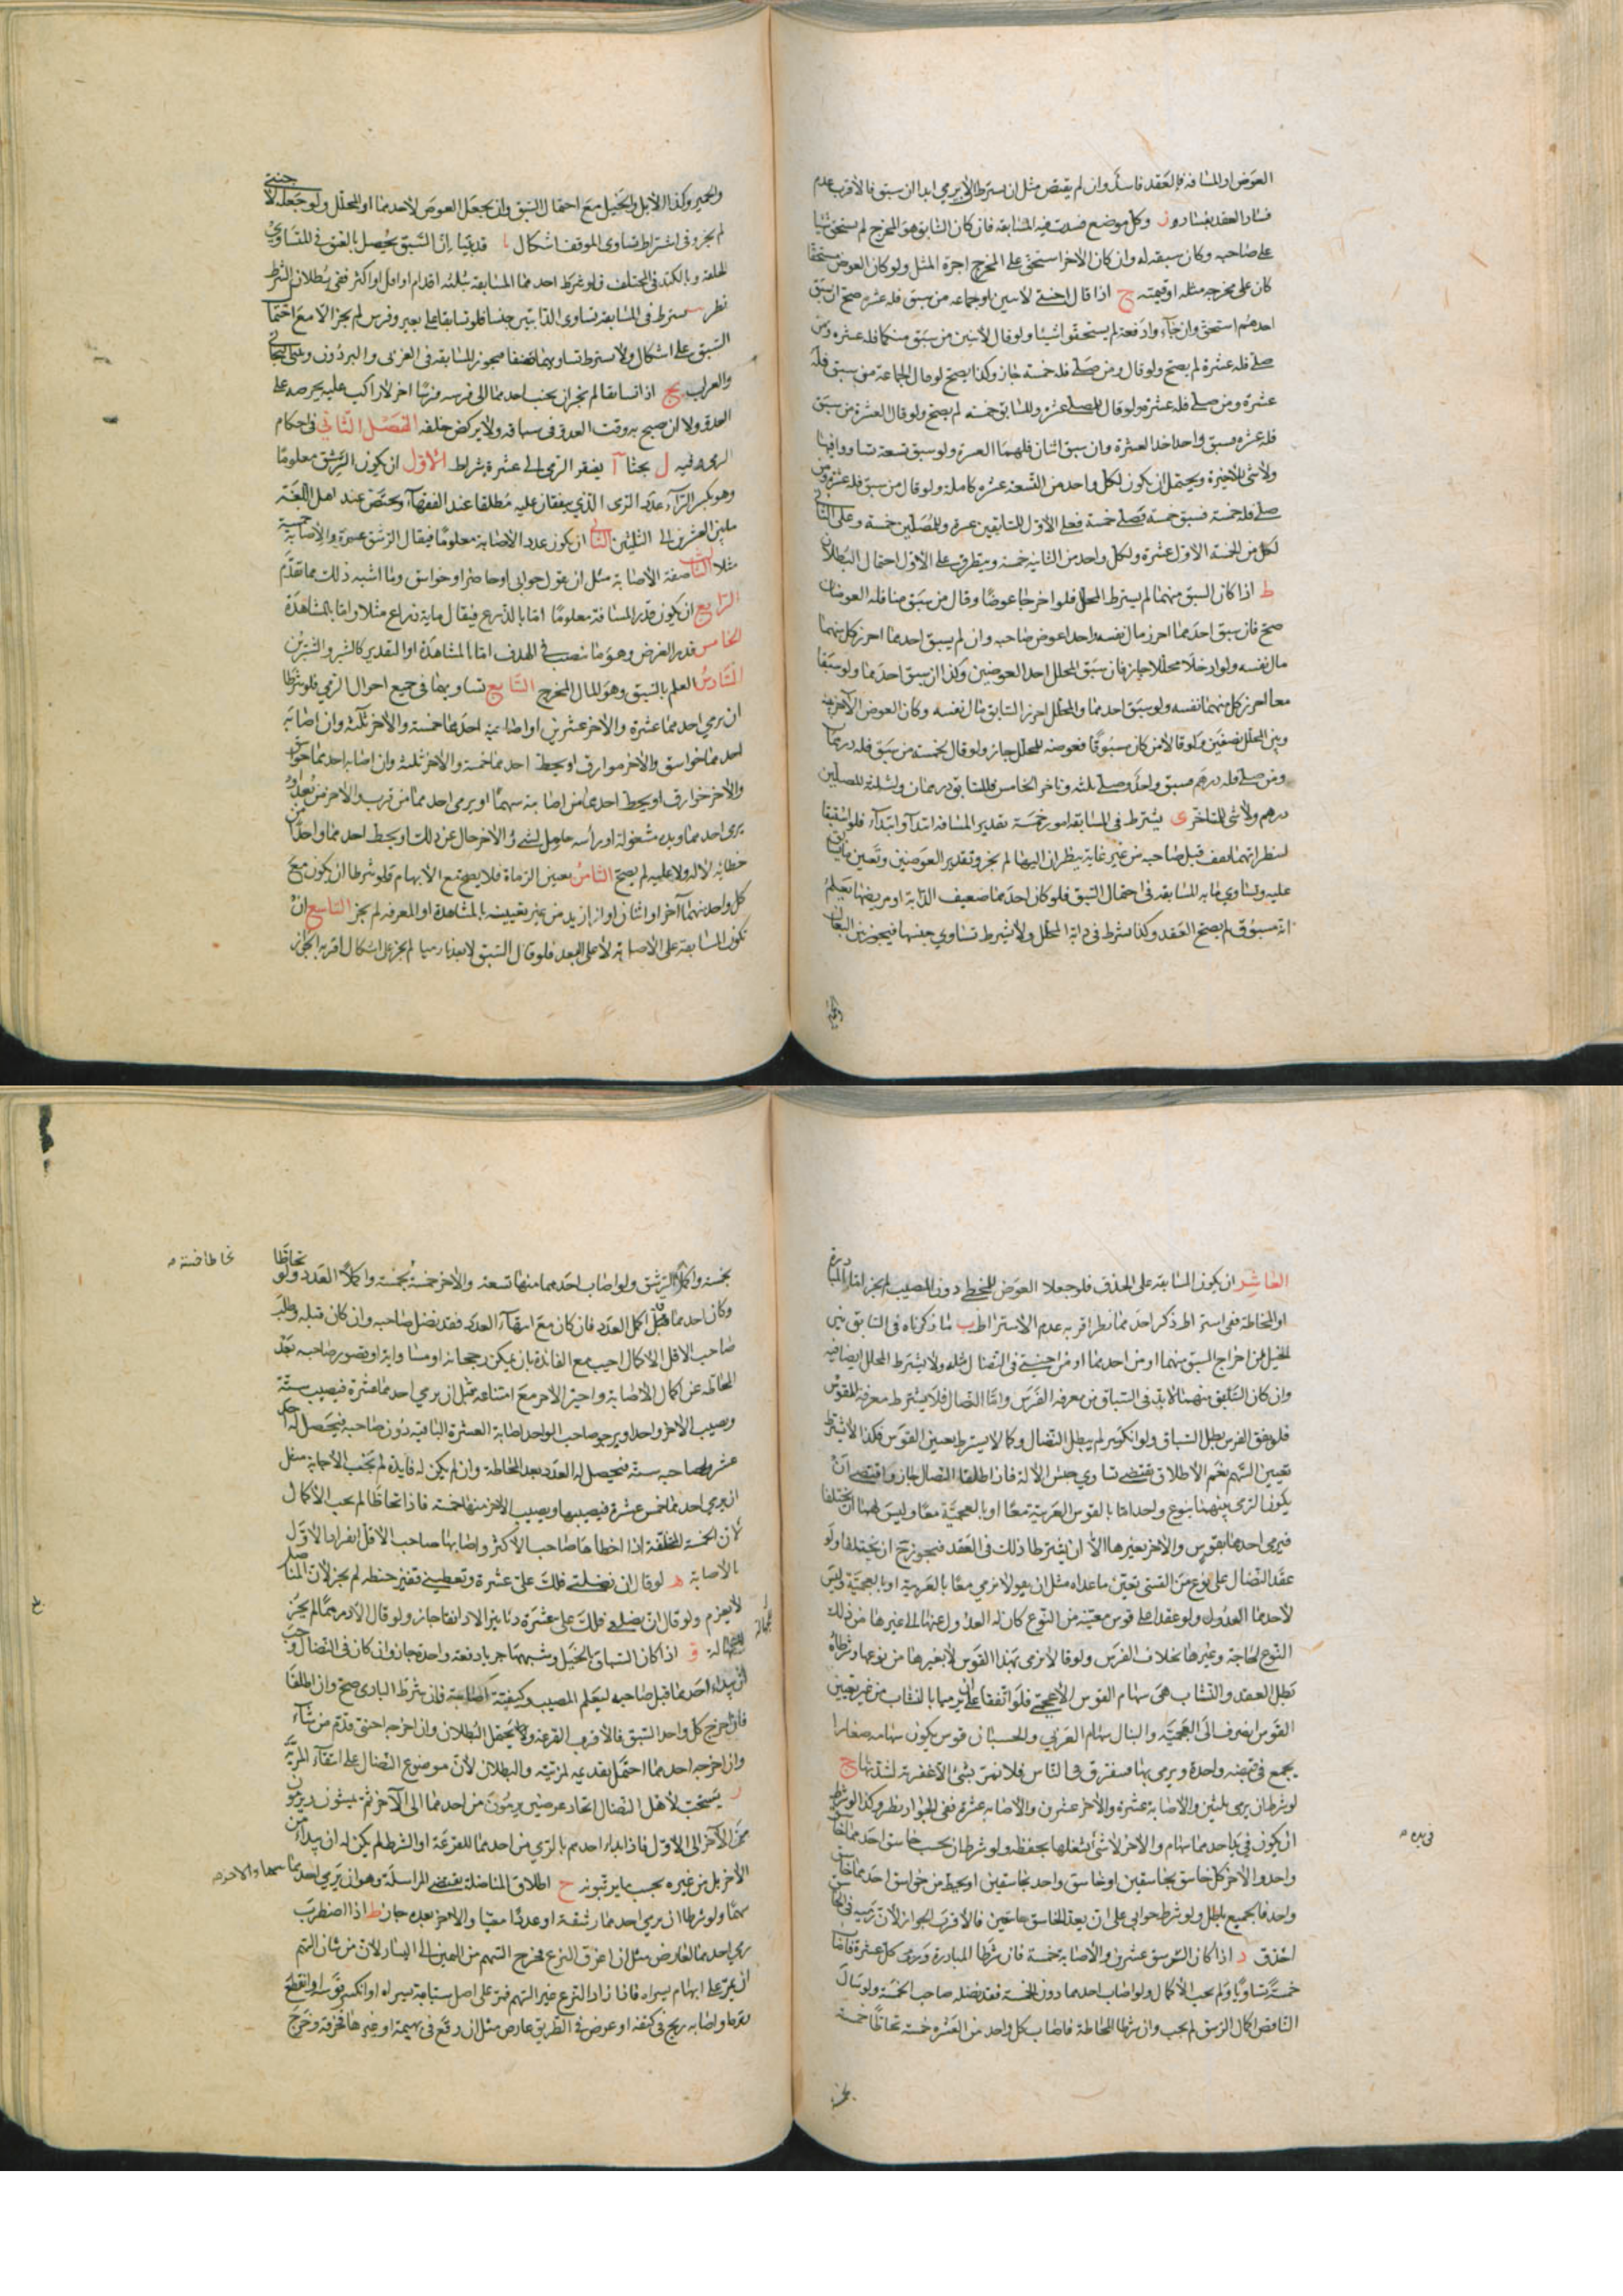 العوض او المسافة فالعقد فاسد وان لم يقتض مثل ان يشترط ان لا يرمي ابدا ان سبق فالاقرب عدم
فساد العقد بفساده ز وكل موضع فسدت فيه المسابقة فان كان السابق هو المخرج لم يستحق شيئا
على صاحبه وكان سبقه له وان كان الآخر استحق على المخرج اجرة المثل ولو كان العوض مستحقا
كان على مخرجه مثله او قيمته ح اذا قال اجنبي لاثنين او جماعة من سبق فله عشرة صح اذ من سبق
احدهم استحق وان جاءوا دفعة لم يستحقوا شيئا ولو قال لاثنين من سبق منكما فله عشرة ومن
صلى فله عشرة لم يصح ولو قال ومن صلى فله خمسة جاز وكذا يصح لو قال لجماعة من سبق فله
عشرة ومن صلى فله عشرة ولو قال للمصلي عشرة وللسابق خمسة لم يصح ولو قال العشرة من سبق
فله عشرة فسبق واحد اخذ العشرة وان سبق اثنان فلهما العشرة ولو سبق تسعة تساووا فيها
ولا شيء للاخير ويحتمل ان يكون لكل واحد من التسعة عشرة كاملة ولو قال من سبق فله عشرة ومن
صلى فله خمسة فسبق خمسة وصلى خمسة فعلى الاول للسابقين عشرة وللمصلين خمسة وعلى الثاني
لكل من الخمسة الاول عشرة ولكل واحد من الثانية خمسة ويتطرق على الاول احتمال البطلان
ط اذا كان السبق منهما لم يشترط المحلل فلو اخرجا عوضا وقال من سبق منا فله العوضان
صح فان سبق احدهما احرز مال نفسه واخذ عوض صاحبه وان لم يسبق احدهما احرز كل منهما
مال نفسه ولو ادخلا محللا جاز فان سبق المحلل اخذ العوضين وكذا ان سبق احدهما ولو سبقا
معا احرز كل منهما نفسه ولو سبق احدهما والمحلل احرز السابق مال نفسه وكان العوض الآخر بينه
وبين المحلل نصفين ولو قالا من كان مسبوقا فعوضه للمحلل جاز ولو قال لخمسة من سبق فله درهمان
ومن صلى فله درهم فسبق واحد وصلى ثلثة وتاخر الخامس فللسابق درهمان ولثلثة المصلين
درهم ولا شيء للمتاخر ى يشترط في المسابقة امور خمسة تقدير المسافة ابتداء وانتهاء فلو استبقا
لينظر ايهما يقف قبل صاحبه من غير غاية ينظران اليها لم يجز وتقدير العوضين وتعين ما يسابق
عليه وتساوي ما به المسابقة في احتمال السبق فلو كان احدهما ضعيف الدابة او مريضها يعلم
انه مسبوق لم يصح العقد وكذا يشترط في دابة المحلل ولا يشترط تساوي جنسها فيجوز بين البغال
والحمير
والحمير وكذا الابل والخيل مع احتمال السبق وان يجعل العوض لاحدهما او للمحلل ولو جعله لاجنبي
لم يجز وفي اشتراط تساوي الموقف اشكال يا قد بينا ان السبق يحصل بالعنق في المتساوي
الخلقة وبالكتد في المختلف ولو شرط احدهما المسابقة بثلثة اقدام او اقل او اكثر ففي بطلان الشرط
نظر يشترط في المسابقة تساوي الدابتين جنسا فلو تسابقا على بعير وفرس لم يجز الا مع احتمال
السبق على اشكال ولا يشترط تساويهما صنفا فيجوز المسابقة في العربي والبرذون وعلى البخاتي
والعراب يج اذا تسابقا لم يجز ان يجنب احدهما الى فرسه فرسا اخر لا راكب عليه يحرضه على
العدو ولا ان يصيح به وقت العدو في سباقه ولا يركض خلفه الفصل الثاني في احكام
الرمي وفيه ل بحثا آ يفتقر الرمي الى عشرة شرائط الاول ان يكون الرشق معلوما
وهو بكسر الراء عدد الرمى الذي يتفقان عليه مطلقا عند الفقهاء ويختص عند اهل اللغة
ما بين العشرين الى الثلثين الثاني ان يكون عدد الاصابة معلوما فيقال الرشق عشرة والاصابة خمسة
مثلا الثالث صفة الاصابة مثل ان يقول حوابي او حاصر او خواسق وما اشبه ذلك مما تقدم
الرابع ان يكون قدر المسافة معلوما اما بالذرع فيقال مائة ذراع مثلا واما بالمشاهدة
الخامس قدر الغرض وهو ما ينصب في الهدف اما بالمشاهدة او التقدير كالشبر والشبرين
السادس العلم بالسبق وهو المال المخرج السابع تساويهما في جميع احوال الرمي فلو شرطا
ان يرمي احدهما عشرة والآخر عشرين او اصابة احدهما خمسة والآخر ثلثة وان اصابة
احدهما خواسق والآخر موارق او يحط احدهما خمسة والآخر ثلثة وان اصابة احدهما خواسق
والآخر خوارق او يحط احدهما من اصابته سهما او يرمي احدهما من قرب والآخر من بعد او
يرمي احدهما ويده مشغولة او رأسه حامل لشيء والآخر خال عن ذلك او يحط احدهما واحدا من
خطائه لا له ولا عليه لم يصح الثامن تعيين الرماة فلا يصح مع الابهام فلو شرطا ان يكون مع
كل واحد منهما آخر او اثنان او ازيد من غير تعيينه بالمشاهدة او المعرفة لم يجز التاسع ان
تكون المسابقة على الاصابة لا على البعد فلو قال السبق لابعدنا رميا لم يجز على اشكال اقربه الجواز
العاشر ان يكون المسابقة على الحذق فلو جعلا العوض للمخطي دون المصيب لم يجز اما المبادرة
او المحاطة ففي اشتراط ذكر احدهما نظر اقربه عدم الاشتراط ب ما ذكرناه في السابق بين
الخيل من اخراج السبق منهما او من احدهما او من اجنبي في النضال مثله ولا يشترط المحلل ايضا فيه
وان كان السابق منهما لا بد في السباق من معرفة الفرس واما النضال فلا يشترط معرفة القوس
فلو نفق الفرس بطل السباق ولو انكسر لم يبطل النضال وكما لا يشترط تعيين القوس فكذا لا يشترط
تعيين السهم نعم الاطلاق يقتضي تساوي جنس الآلة فان اطلقا النضال جاز واقتضى ان
يكونا الرمي بينهما بنوع واحد اما بالقوس العربية معا او بالعجمية معا وليس لهما ان يختلفا
فيرمي احدهما بقوس والآخر بغيرها الا ان يشترطا ذلك في العقد فيجوز ح ان يختلفا ولو
عقد النضال على نوع من القسي تعين ما عداه مثل ان يقولا نرمي معا بالعربية او بالعجمية وليس
لاحدهما العدول ولو عقدا على قوس معينة من النوع كان له العدول عنها الى غيرها من ذلك
النوع لحاجة وغيرها بخلاف الفرس ولو قالا نرمي بهذا القوس لا بغيرها من نوعها وشرطاه
بطل العقد والنشاب هي سهام القوس الاعجمي فلو اتفقا على ان يرميا بالنشاب من غير تعيين
القوس انصرف الى العجمية والنبال سهام العربي والحسبان قوس يكون سهامه صغارا
يجمع في قبضة واحدة ويرمى بها فيتفرق في الناس فلا تمر بشيء الا عقرته لشدتها ج
لو شرطا ان يرمي بثلثين والاصابة عشرة والآخر عشرون والاصابة عشرة ففي الجواز نظر وكذا لو شرط
ان يكون في يد احدهما سهام والآخر لا شيء يشغلها بحفظه ولو شرط ان يحسب خاسق احدهما خاسق
واحد والآخر كل خاسق بخاسقين او خاسق واحد بخاسقين او يحط من خواسق احدهما خاسق
واحد فالجميع باطل ولو شرط حوابي على ان يعد الخاسق حابيين فالاقرب الجواز لان رميه في الخاسق
احذق د اذا كان الرشق عشرين والاصابة خمسة فان شرطا المبادرة ورمى كل عشرة فاصابا
خمسة تساويا ولم يجب الاكمال ولو اصاب احدهما دون الخمسة فقد نضله صاحب الخمسة ولو سأل
الناقص اكمال الرشق لم يجب وان شرطا المحاطة فاصاب كل واحد من العشرة خمسة تحاطا خمسة
في يده
بخمسة
بخمسة واكملا الرشق ولو اصاب احدهما منها تسعة والآخر خمسة تحاطا خمسة بخمسة واكملا العدد ولو
وكان احدهما قبل اكمال العدد فان كان مع انتهاء العدد فقد نضل صاحبه وان كان قبله وطلب
صاحب الاقل الاكمال اجيب مع الفائدة بان يمكن رجحانه او مساواته او تقصير صاحبه بعد
المحاطة عن اكمال الاصابة واجبر الآخر مع امتناعه مثل ان يرمي احدهما عشرة فيصيب ستة
ويصيب الآخر واحدا ويرجو صاحب الواحد اصابة العشرة الباقية دون صاحبه فيحصل له احد
عشر ولصاحبه ستة فيحصل له العدد بعد المحاطة وان لم يكن له فائدة لم تجب الاجابة مثل
ان يرمي احدهما خمس عشرة فيصيبها ويصيب الآخر منها خمسة فاذا تحاطا لم يجب الاكمال
لان الخمسة المتخلفة اذا اخطاها صاحب الاكثر واصابها صاحب الاقل انفرد الاول
بالاصابة ه لو قال ان نضلتني فلك علي عشرة وتعطيني قفيز حنطة لم يجز لان المناضل
لا يغرم ولو قال ان نضلتني فلك علي عشرة دنانير الا دانقا جاز ولو قال الا درهما لم يجز
للجهالة و اذا كان السباق بالخيل وشبهها جريا دفعة واحدة جاز وان كان في النضال وجب
ان يبدأ احدهما قبل صاحبه ليعلم المصيب وكيفية اصابته فان شرط البادي صح وان اطلقا
فان اخرج كل واحد السبق فالاقرب القرعة ويحتمل البطلان وان اخرجه اجنبي قدم من شاء
وان اخرجه احدهما احتمل تقديمه لمزيته والبطلان لان موضوع النضال على انتفاء المزية
ز يستحب لاهل النضال اتخاذ غرضين يرمون من احدهما الى الآخر ثم يمشون ويرمون
من الآخر الى الاول فاذا بدأ احدهم بالرمي من احدهما للقرعة او الشرط لم يكن له ان يبدأ من
الآخر بل من غيره بحسب ما يرتبونه ح اطلاق المناضلة يقتضي المراسلة وهو ان يرمي احدهما سهما والآخر
سهما ولو شرطا ان يرمي احدهما رشقه او عددا معينا والآخر بعده جاز ط اذا اضطرب
رمي احدهما لعارض مثل ان اغرق النزع فخرج السهم من اليمين الى اليسار لان من شان السهم
ان يمر على ابهام يسراه فاذا زاد النزع عبر السهم فمر على اصل سبابة يسراه او انكسر قوسه او انقطع
وترها او اصابه ريح في كتفه او عرض في الطريق عارض مثل ان وقع في بهيمة او غيرها فخرقه وخرج